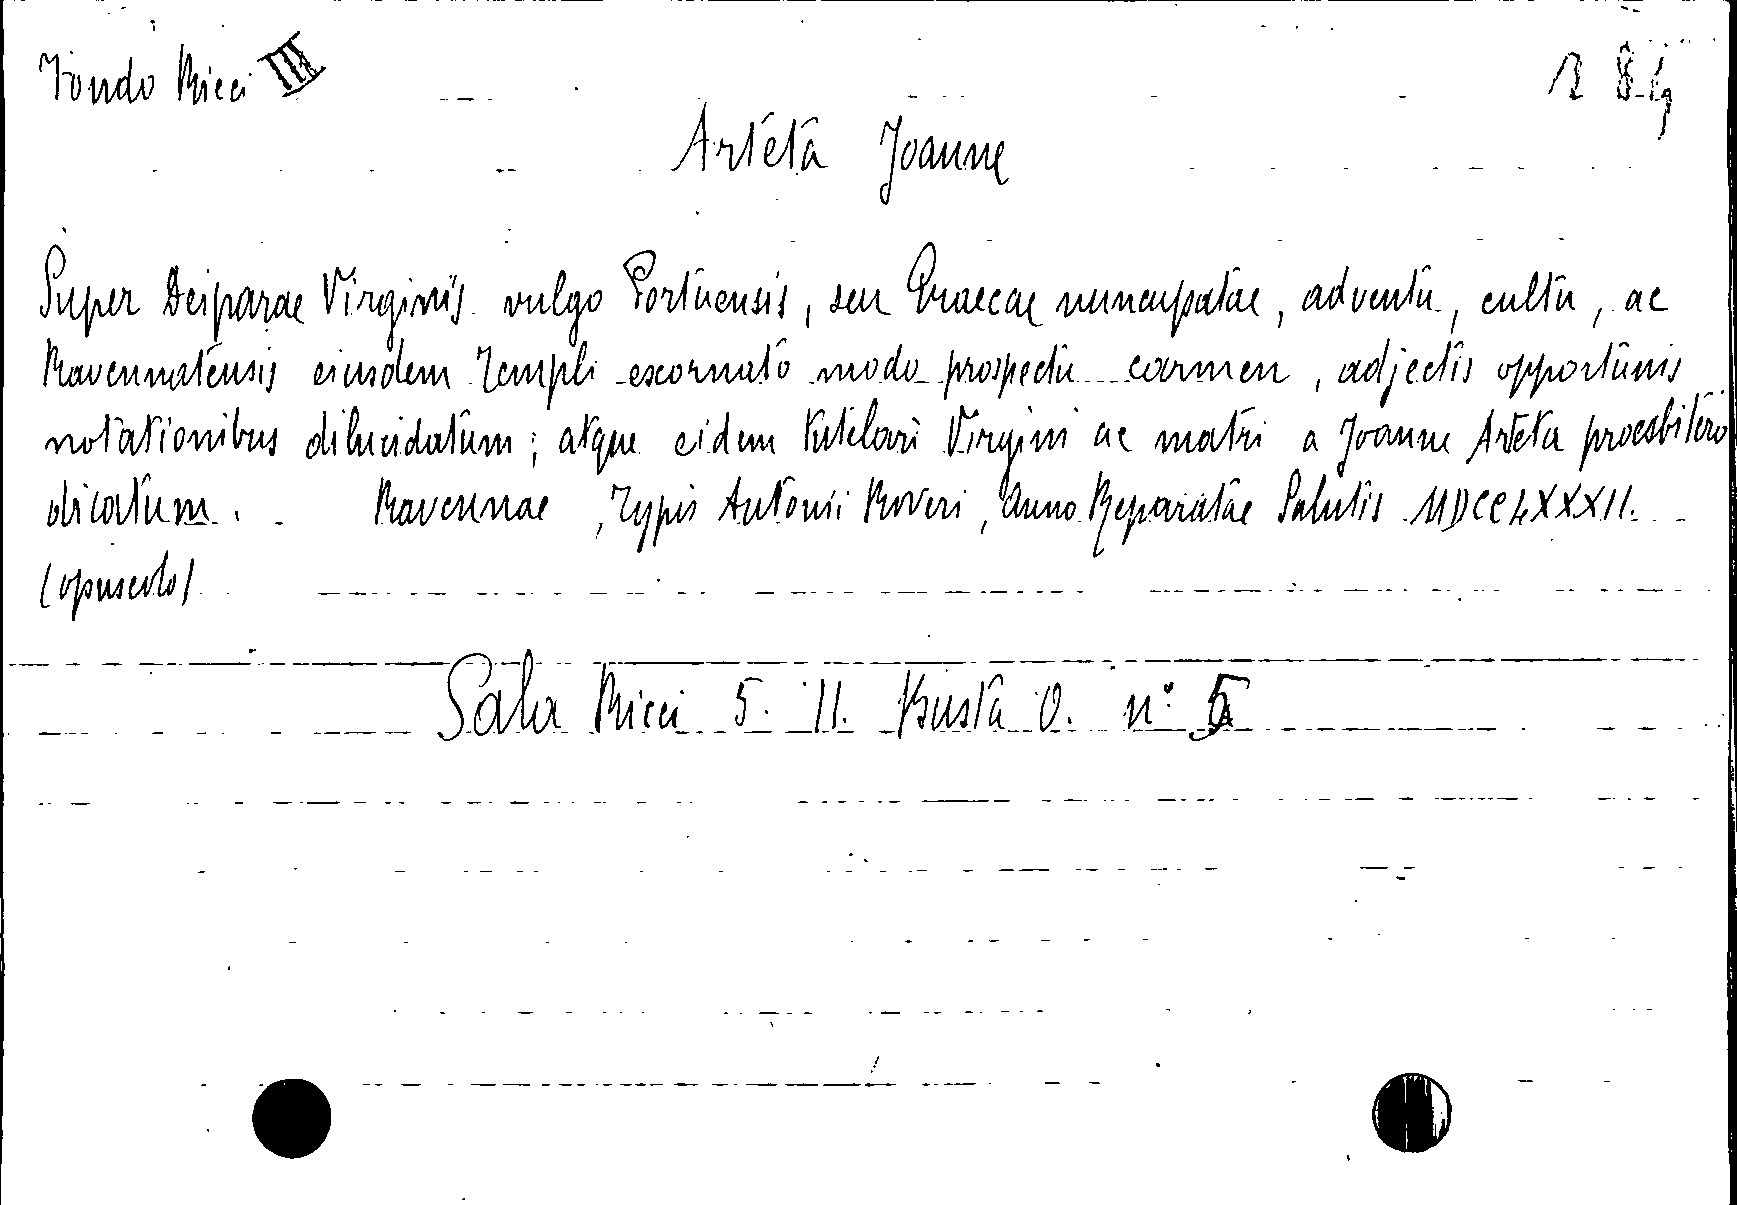 Fondo Ricci III
B 84
Arteta Joanne
Super Deiparae Virginis vulgo Portuensis, seu Graecae nuncupatae, adventu, cultu, ac
Ravennatensis eiusdem Templi exornato modo prospectu carmen, adjectis opportunis
notationibus dilucidatum; atque eidem tutelari Virgini ac matri a Joanne Arteta praesbitero
dicatum. Ravennae, Typis Antonii Roveri, Anno Reparatae Salutis MDCCLXXXII.
(opuscolo)
Sala Ricci 5. 11. Busta O. n° 5